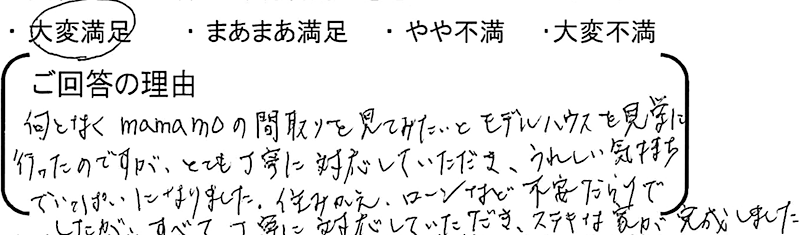 ・大変満足 ・まあまあ満足 ・やや不満 ・大変不満
ご回答の理由
何となくmamamoの間取りを見てみたいとモデルハウスを見学に
行ったのですが、とても丁寧に対応していただき、うれしい気持ち
でいっぱいになりました。住みかえ、ローンなど不安だらけで
したが、すべて丁寧に対応していただき、ステキな家が完成しました